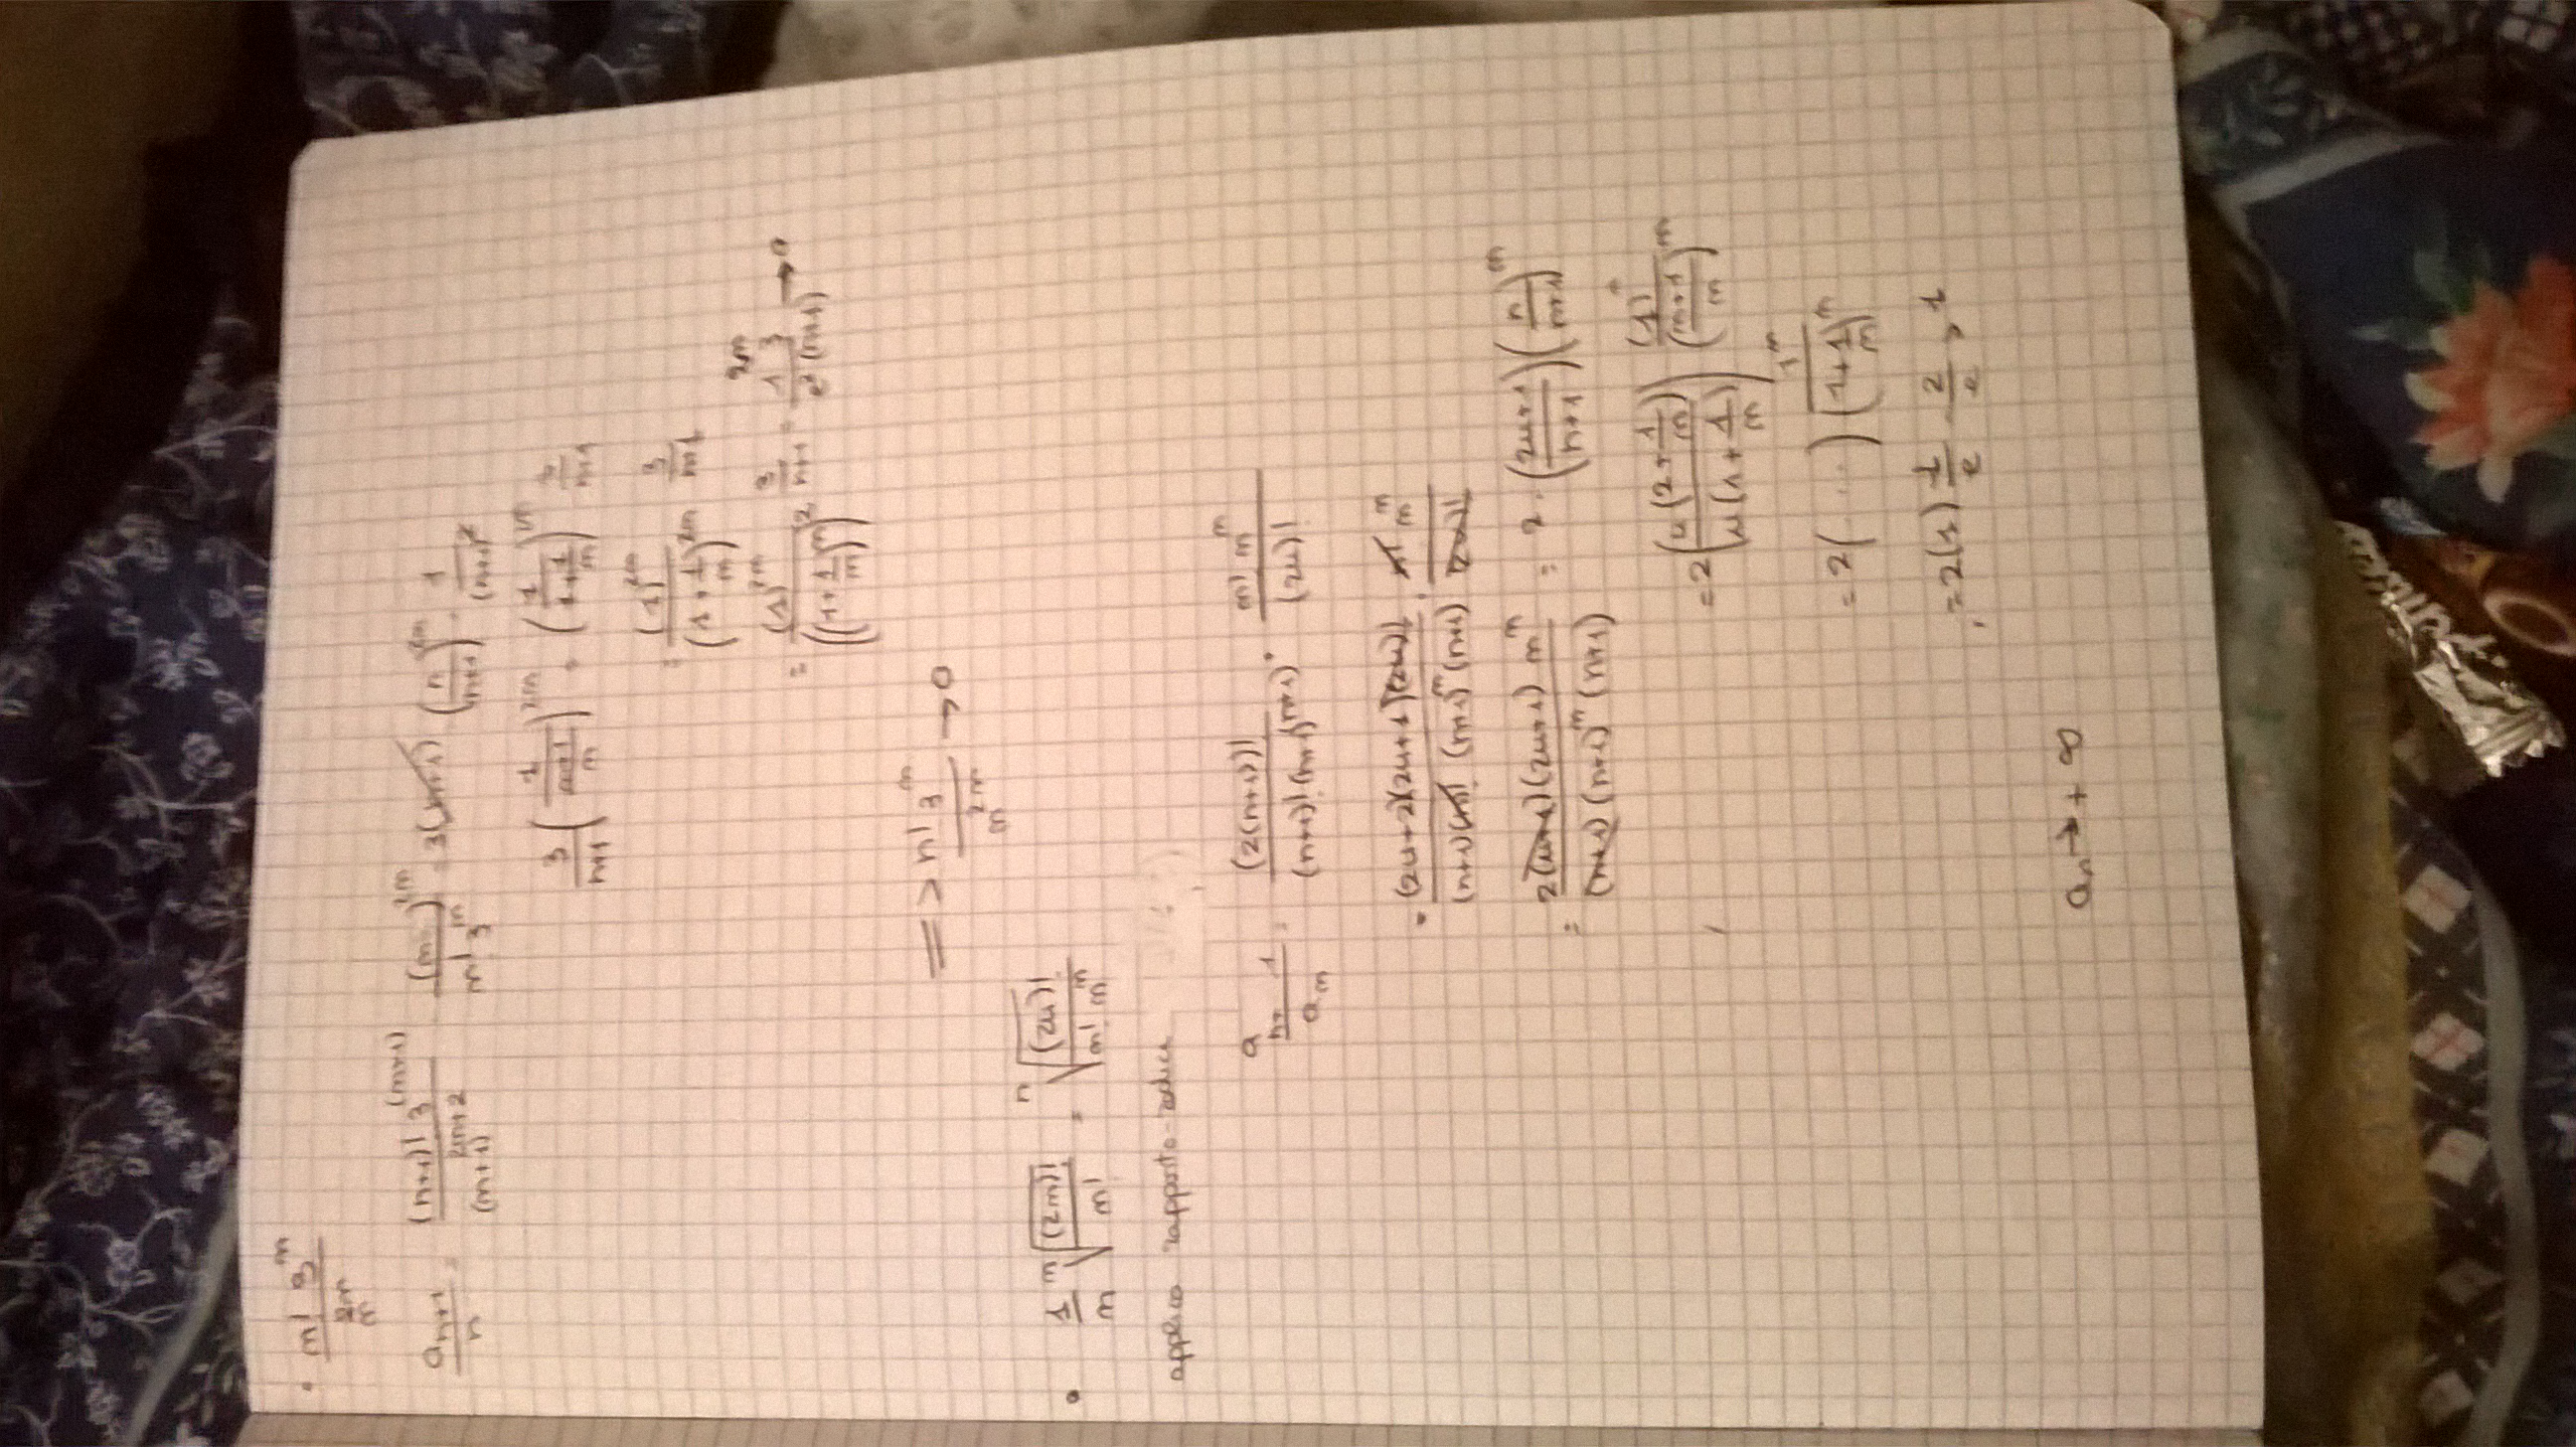 • n! 3^n / n^2n
a_n+1 / n = (n+1)! 3^(n+1) / (n+1)^2n+2 · (n)^2n / n! 3^n = 3(n+1) (n / n+1)^2n · 1 / (n+1)^2
3 / n+1 (1 / (n+1 / n))^2n = (1 / (1 + 1/n))^2n 3 / n+1
= (1)^2n / (1 + 1/n)^2n 3 / n+1
= (1)^2n / ((1 + 1/n)^n)^2 3 / n+1 = 1^2n 3 / e^2 (n+1) → 0
=> n! 3^n / n^2n → 0
• 1/n n√((2n)! / n!) = n√((2n)! / n! n^n)
applico rapporto-radice
a_n+1 / a_n = (2(n+1))! / (n+1)! (n+1)^(n+1) · n! n^n / (2n)!
= (2n+2)(2n+1)(2n)! / (n+1)(n)! (n+1)^n (n+1) · n! n^n / (2n)!
= 2(n+1)(2n+1) n^n / (n+1)(n+1)^n (n+1) = 2 · (2n+1 / n+1)(n / n+1)^n
= 2 (n(2 + 1/n) / n(1 + 1/n)) (1)^n / (n+1 / n)^n
= 2( ... ) 1^n / (1 + 1/n)^n
= 2(1) 1/e = 2/e > 1
a_n → + ∞